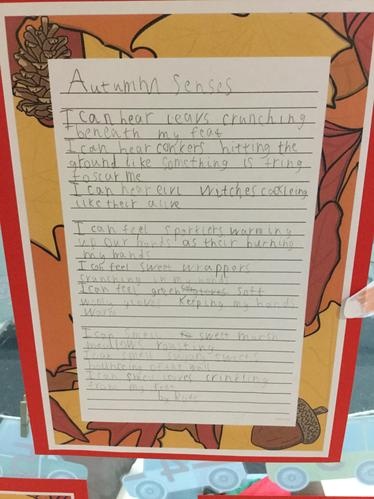 Autumn Senses
I can hear leavs crunching
beneath my feat
I can hear conkers hitting the
ground like something is tring
to scar me
I can hear evil witches
like their alive
I can feel sparklers warming
up our hands as their burning
my hands
I can feel sweet wrappers
crunching in my hand
I can feel green soft
wooly gloves keeping my hands
warm
I can smell swett marsh
mellows roasting
I can smell sugary sweets
I can smell leaves crinkling
from my tree
by